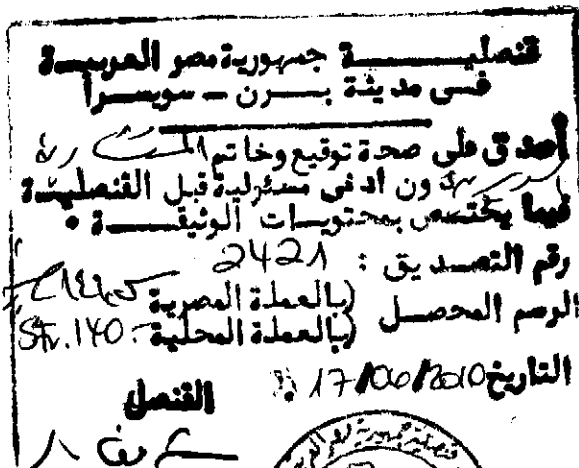 قنصليـــة جمهورية مصر العربيـة
فـى مدينة بـــرن ـ سويسـرا
أصدق على صحة توقيع وخاتم
دون أدنى مسئولية قبل القنصليـة
فيما يختـص بمحتويـات الوثيقــة •
رقم التصـديق : 2421
الرسم المحصـل (بالعملة المصرية
(بالعملة المحلية Sfr. 140.-
التاريخ 17/06/2010
القنصل